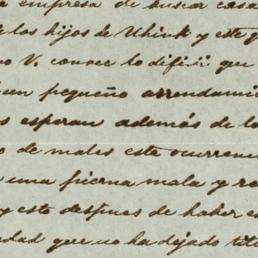 a empresa de buscar casa
los hijos de Uhink y este
o V. conoce lo difícil que
un pequeño arrendami
s esperan además de lo
o de males este ocurren
una pierna mala y re
y esto después de haber es
edad que no ha dejado títe